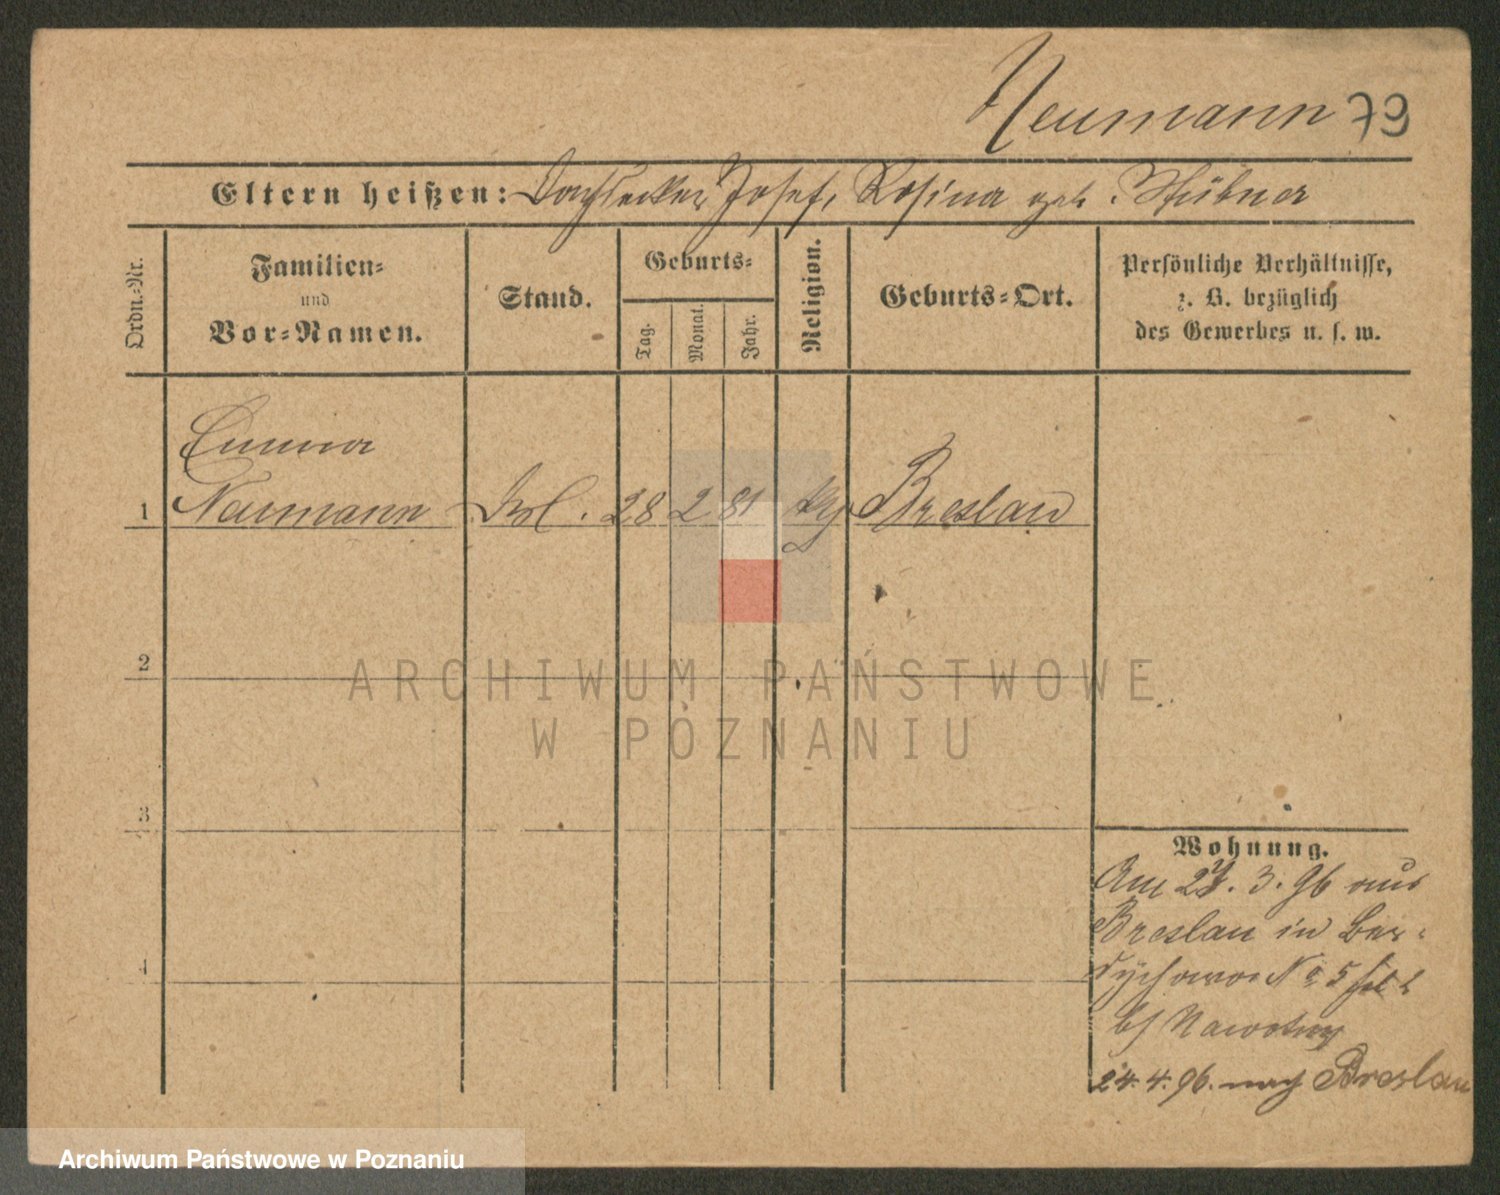 Neumann 79
Eltern heißen: Dachdecker Josef, Rosina geb. Hübner
Ordn.-Nr.
Familien-
und
Vor-Namen.
Stand.
Geburts-
Tag.
Monat.
Jahr.
Religion.
Geburts-Ort.
Persönliche Verhältnisse,
z. B. bezüglich
des Gewerbes u. s. w.
Emma
1 Neumann 28 2 81 Breslau
2
3
4
Wohnung.
Am 27. 3. 96 aus
Breslau in Ber-
dychowo No 5
bei Nawotny
24. 4. 96. nach Breslau
ARCHIWUM PAŃSTWOWE
W POZNANIU
Archiwum Państwowe w Poznaniu